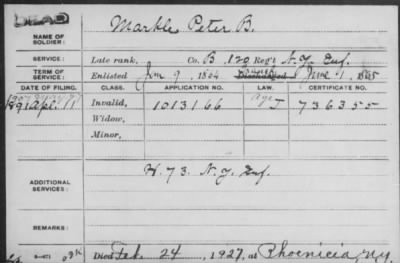 DEAD
NAME OF SOLDIER: Markle Peter B.
SERVICE: Late rank, Co. B, 120 Reg't N.Y. Inf.
TERM OF SERVICE: Enlisted Jan 9, 1864 Discharged June 1, 1865
DATE OF FILING. CLASS. APPLICATION NO. LAW. CERTIFICATE NO.
1891 Apl. 11 Invalid, 1013166 J 736355
Widow,
Minor,
ADDITIONAL SERVICES: H. 73. N.Y. Inf.
REMARKS:
Died Feb. 24, 1927, at Phoenicia, N.Y.